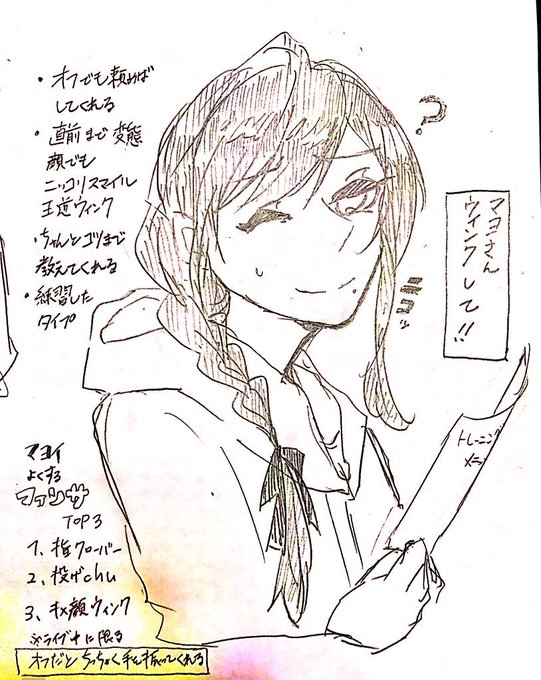 ・オフでも頼めば
してくれる
・直前まで変態
顔でも
ニッコリスマイル
王道ウィンク
・ちゃんとコツまで
教えてくれる
・練習した
タイプ
?
マヨさん
ウインクして!!
ニコッ
トレーニング
メニュー
マヨイ
よくする
ファンサ
TOP3
1、指クローバー
2、投げchu
3、キメ顔ウィンク
※ライブ中に限る
オフだとちっちゃく手を振ってくれる